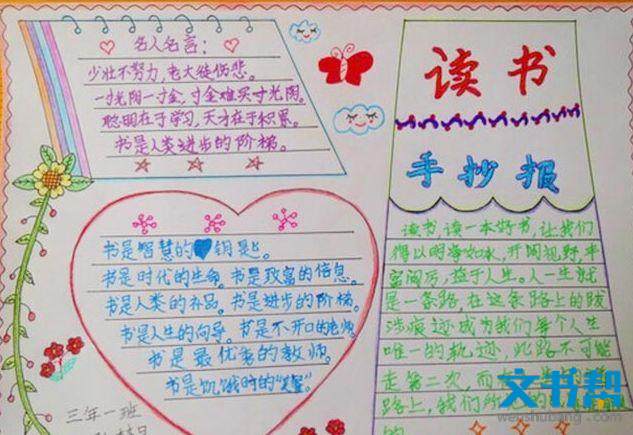 名人名言：
少壮不努力，老大徒伤悲。
一寸光阴一寸金，寸金难买寸光阴。
聪明在于学习，天才在于积累。
书是人类进步的阶梯。
读书
手抄报
书是智慧的钥匙。
书是时代的生命。书是致富的信息。
书是人类的补品。书是进步的阶梯。
书是人生的向导。书是不开口的老师。
书是最优秀的教师。
书是饥饿时的
读书读一本好书，让我们
得以明净如水，开阔视野，丰
富阅历，益于人生。人一生就
是一条路，在这条路上的跋
涉痕迹成为我们每个人生
唯一的轨迹，此路不可能
走第二次，而
路上，我们所
的
三年一班
文书帮
wenshubang.com